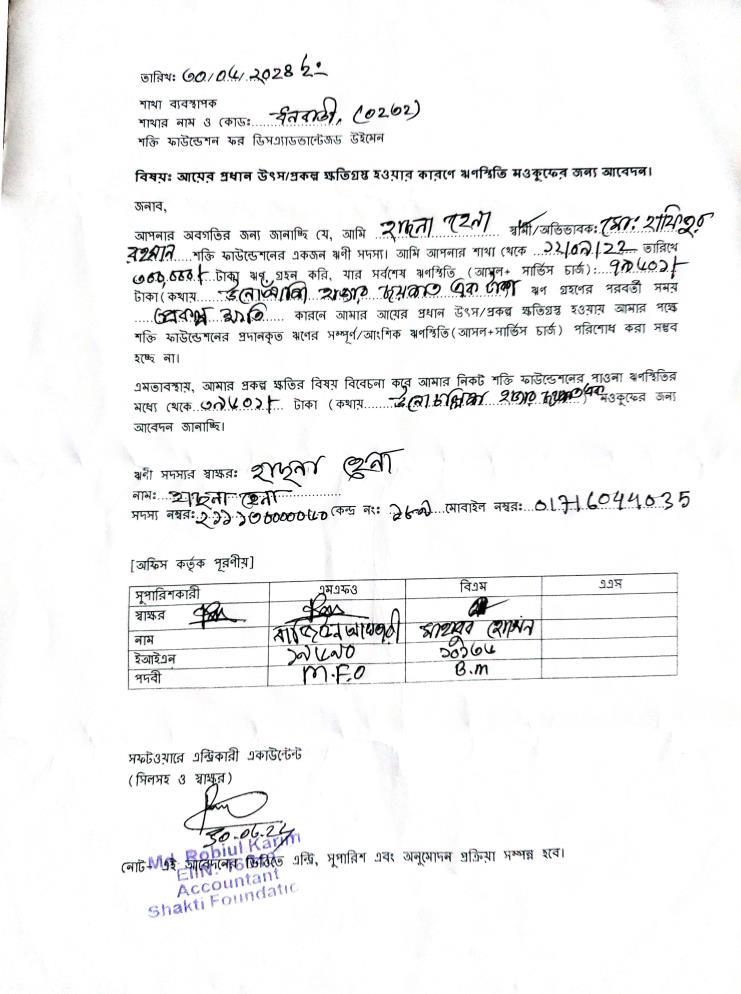 তারিখ: ৩০/০৬/২০২৪ ইং
শাখা ব্যবস্থাপক
শাখার নাম ও কোড: ধনবাড়ী, (0262)
শক্তি ফাউন্ডেশন ফর ডিসএ্যাডভান্টেজড উইমেন
বিষয়: আয়ের প্রধান উৎস/প্রকল্প ক্ষতিগ্রস্থ হওয়ার কারণে ঋণস্থিতি মওকুফের জন্য আবেদন।
জনাব,
আপনার অবগতির জন্য জানাচ্ছি যে, আমি হাছনা হেনা স্বামী/অভিভাবক: মো:
রহমান শক্তি ফাউন্ডেশনের একজন ঋণী সদস্য। আমি আপনার শাখা থেকে তারিখে
৩০০,০০০/- টাকা ঋণ গ্রহন করি, যার সর্বশেষ ঋণস্থিতি (আসল+ সার্ভিস চার্জ): ৭৯৬০১/-
টাকা (কথায় উনোআশি হাজার ছয়শত এক টাকা ঋণ গ্রহণের পরবর্তী সময়
প্রকল্প ক্ষতি কারনে আমার আয়ের প্রধান উৎস/প্রকল্প ক্ষতিগ্রস্থ হওয়ায় আমার পক্ষে
শক্তি ফাউন্ডেশনের প্রদানকৃত ঋণের সম্পূর্ণ/আংশিক ঋণস্থিতি(আসল+সার্ভিস চার্জ) পরিশোধ করা সম্ভব
হচ্ছে না।
এমতাবস্থায়, আমার প্রকল্প ক্ষতির বিষয় বিবেচনা করে আমার নিকট শক্তি ফাউন্ডেশনের পাওনা ঋণস্থিতির
মধ্যে থেকে ৩৯৬০১/- টাকা (কথায় উনোচল্লিশ হাজার ছয়শত এক মওকুফের জন্য
আবেদন জানাচ্ছি।
ঋণী সদস্যর স্বাক্ষর: হাছনা হেনা
নাম: হাছনা হেনা
সদস্য নম্বর: কেন্দ্র নং: মোবাইল নম্বর: 01716044035
[অফিস কর্তৃক পূরণীয়]
সুপারিশকারী এমএফও বিএম এএস
স্বাক্ষর
নাম হোসেন
ইআইএন ১৯৬৯০ ১০১৬৬
পদবী M.F.O B.m
সফটওয়ারে এন্ট্রিকারী একাউন্টেন্ট
(সিলসহ ও স্বাক্ষর)
30.06.24
Md. Robiul Karim
নোট- এই আবেদনের ভিত্তিতে এন্ট্রি, সুপারিশ এবং অনুমোদন প্রক্রিয়া সম্পন্ন হবে।
Accountant
Shakti Foundatic